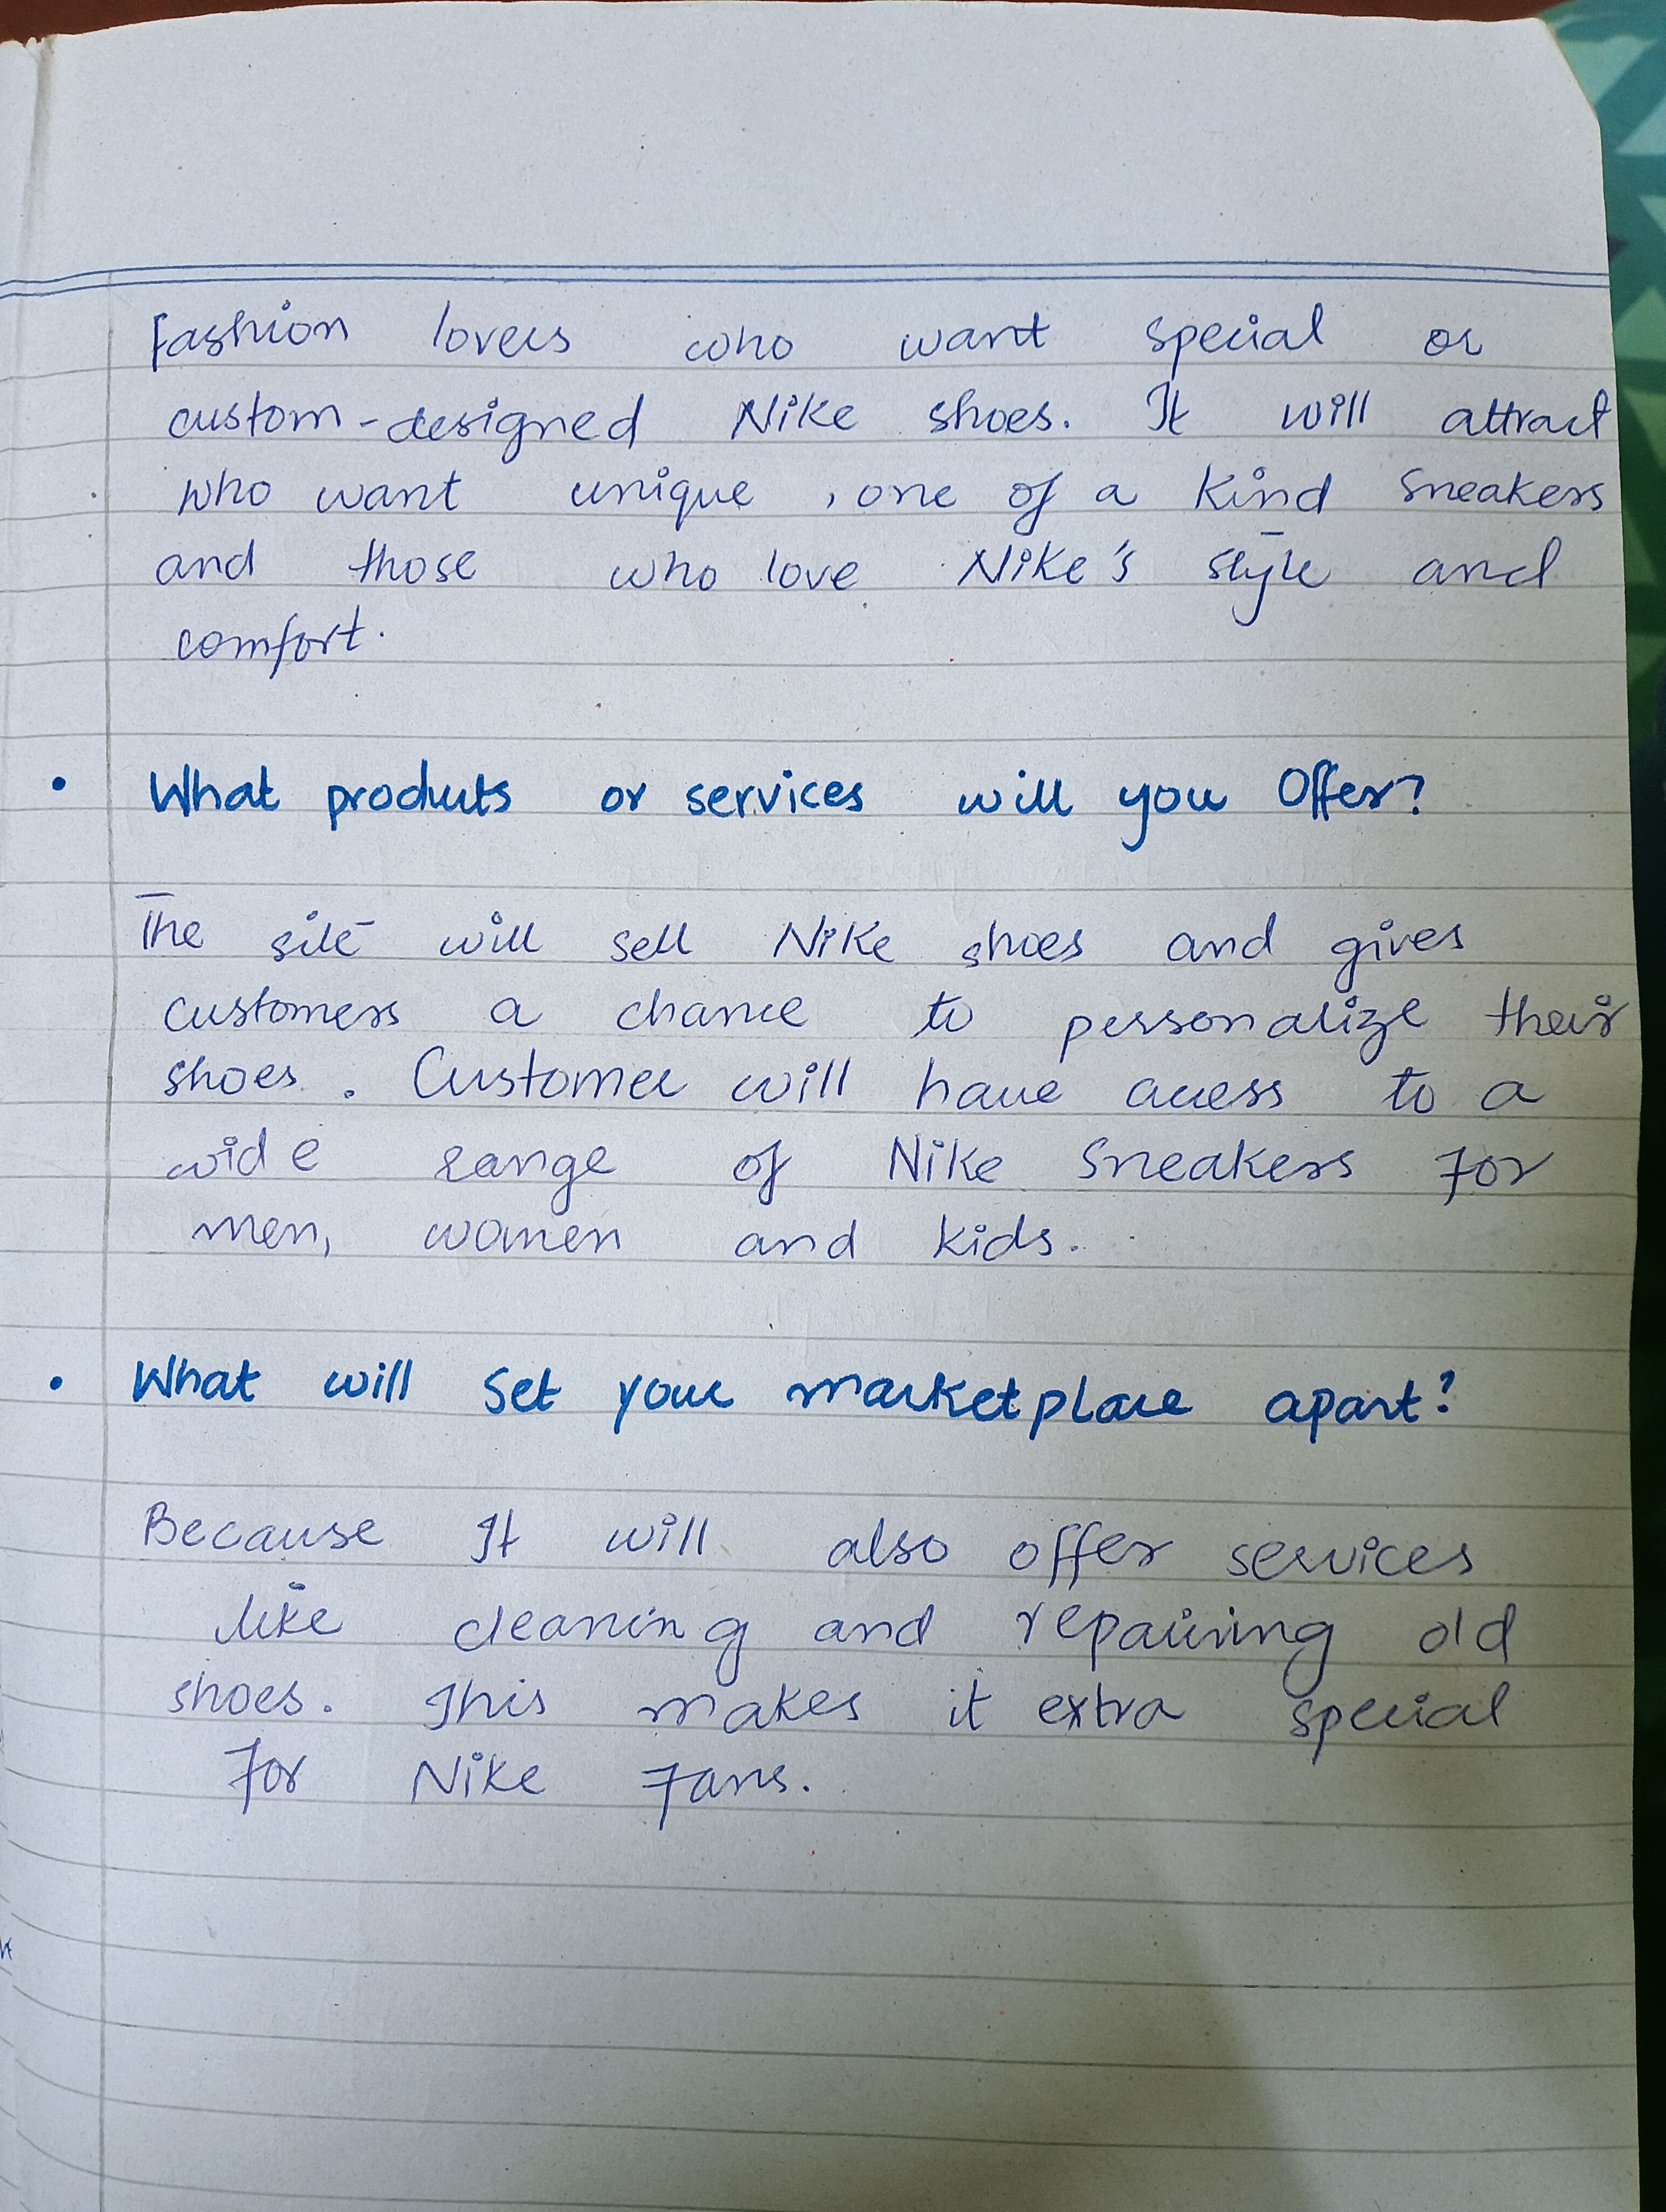 fashion lovers who want special or
custom-designed Nike shoes. It will attract
who want unique , one of a kind sneakers
and those who love Nike's style and
comfort.
• What products or services will you Offer?
The site will sell Nike shoes and gives
customers a chance to personalize their
shoes. Customer will have access to a
wide range of Nike Sneakers for
men, women and kids.
• What will set your marketplace apart?
Because It will also offer services
like cleaning and repairing old
shoes. This makes it extra special
for Nike Fans.